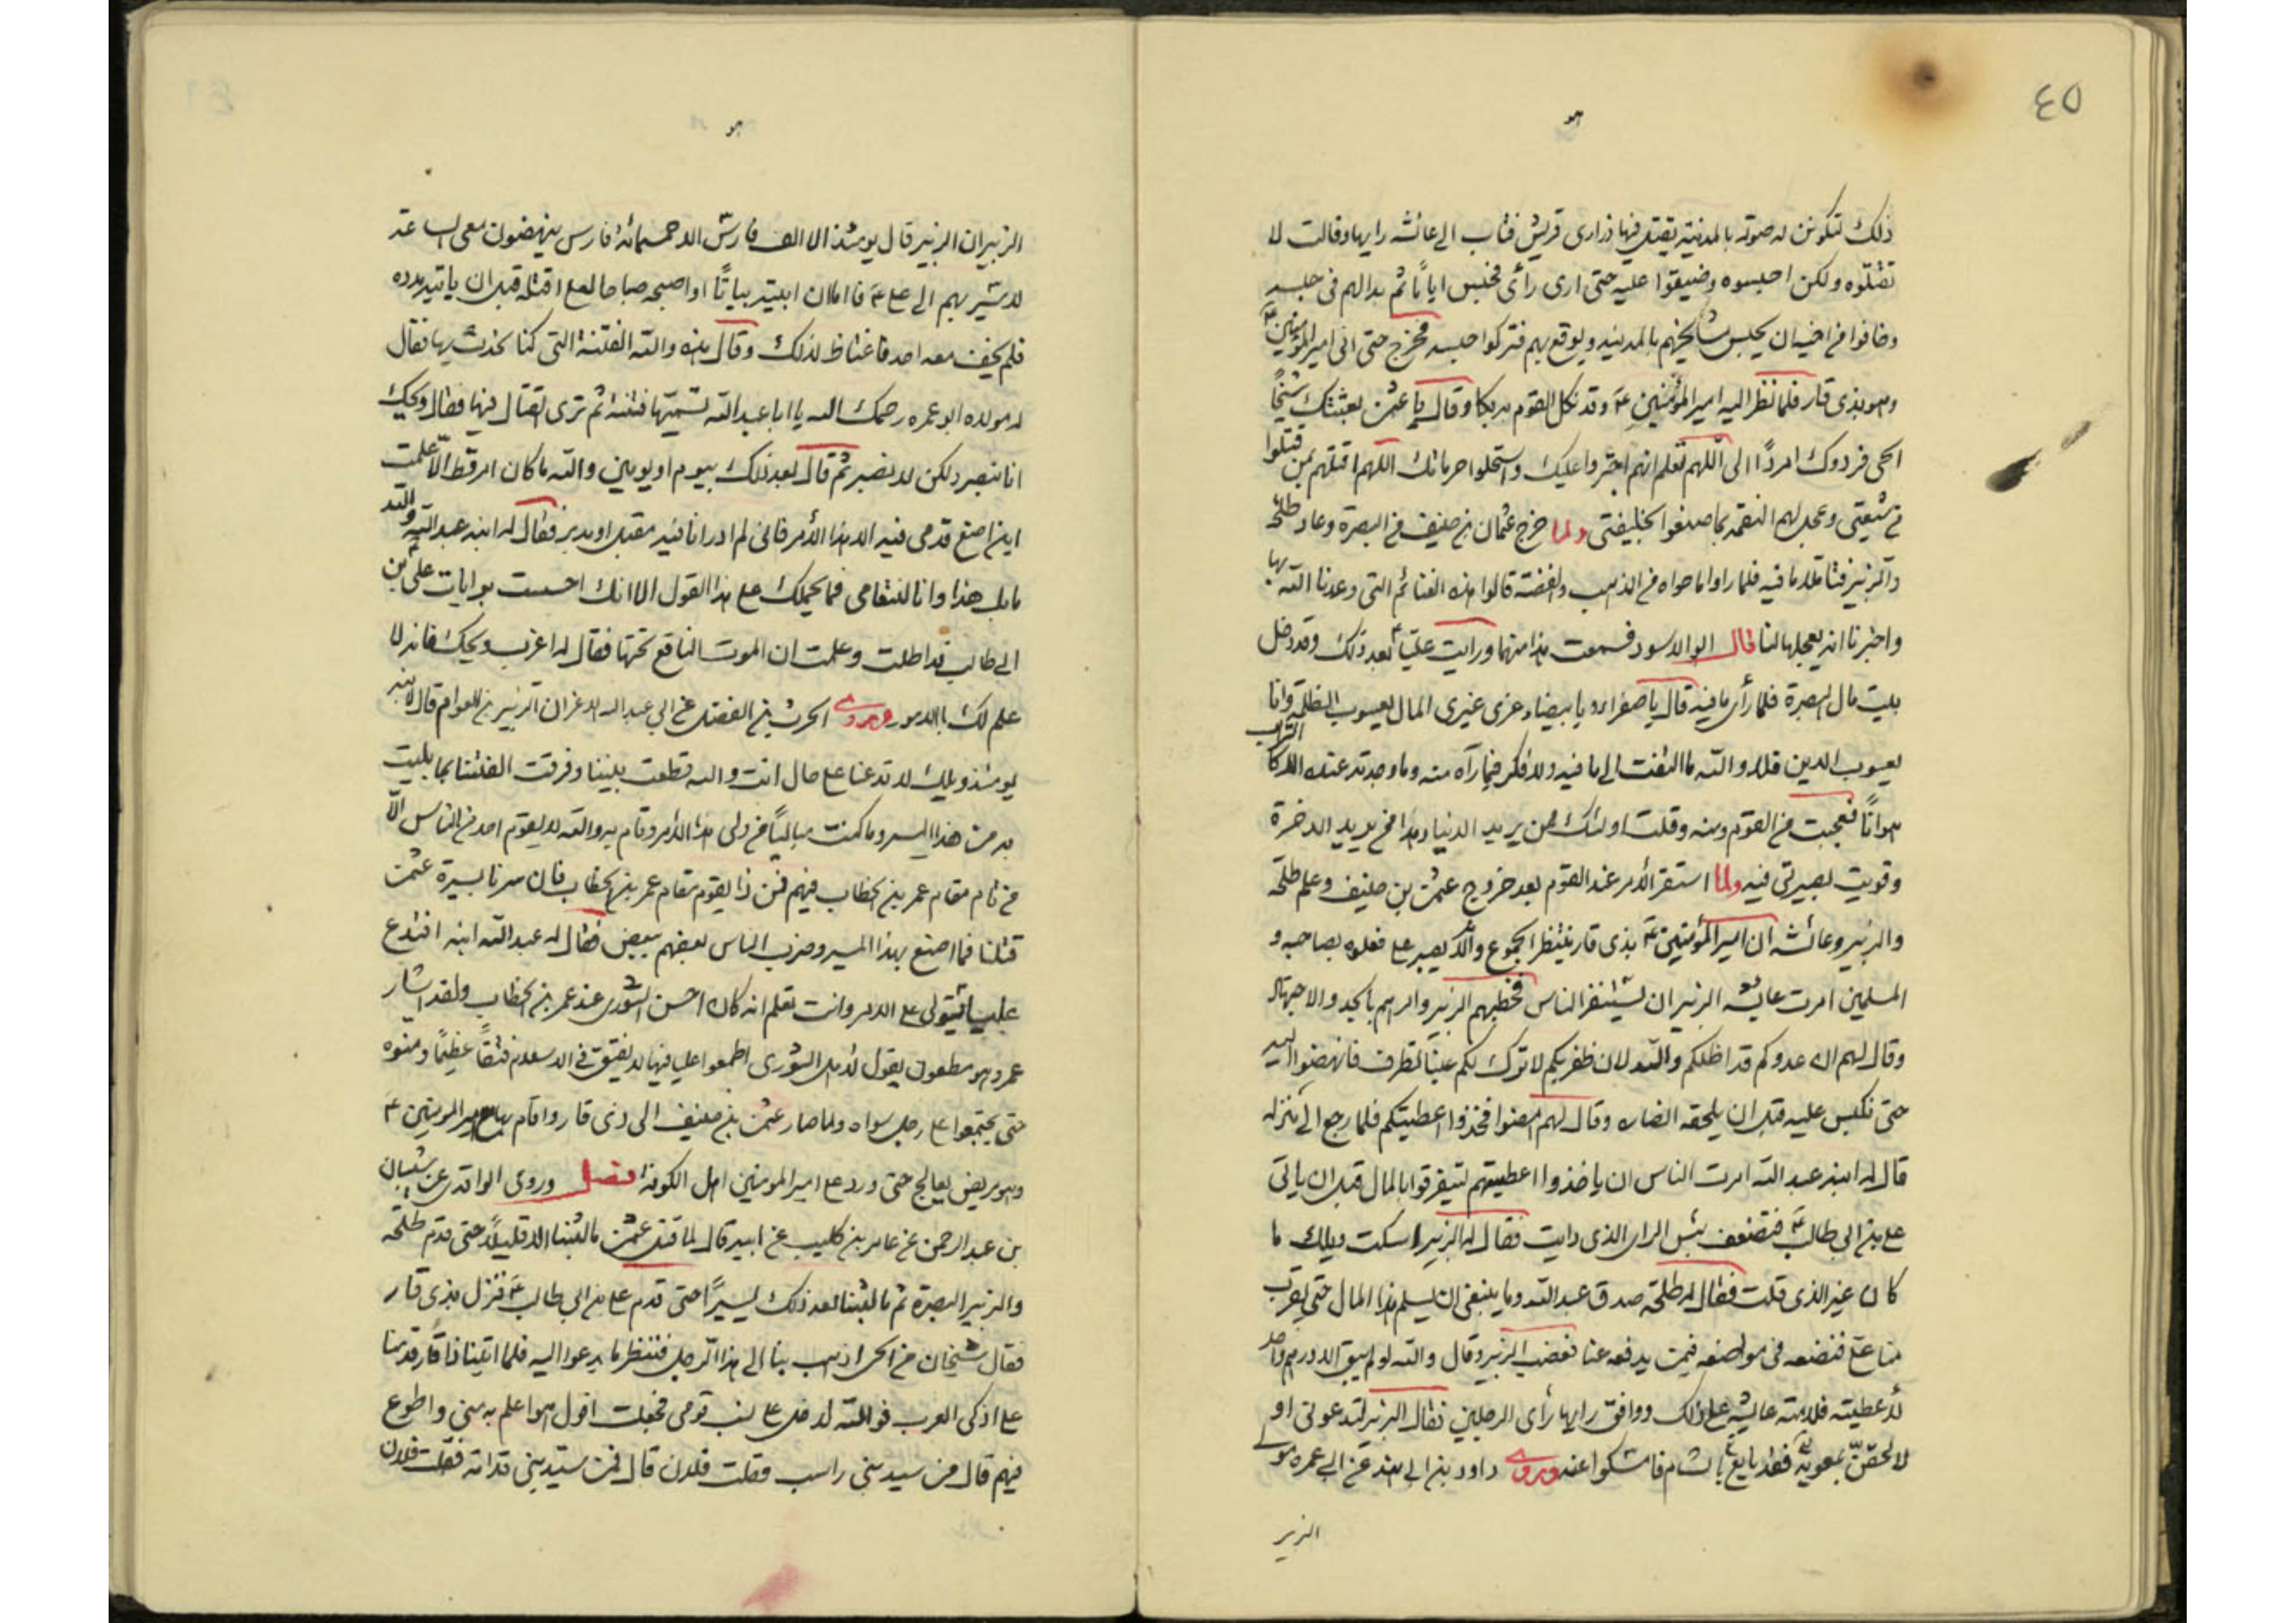 ٤٥
هو
ذلك لتكونن له صوته بالمدينة يقتل فيها ذراري قريش فثاب الى عائشة رايها وقالت لا
تقتلوه ولكن احبسوه وضيقوا عليه حتى ارى رأى فحبس اياما ثم بدا لهم في حبسه
وخافوا من اخيه ان يحبس مشايخهم بالمدينة ويوقع بهم فتركوا حبسه فخرج حتى اتى امير المؤمنين ع
وهو بذى قار فلما نظر اليه امير المؤمنين ع وقد نكل القوم به بكا وقال يا عثمن بعثتك شيخا
الحى فردوك امردا الى اللهم تعلم انهم اجتروا عليك واستحلوا حرماتك اللهم اقتلهم بمن قتلوا
من شيعتى وعجل لهم النقمة بما صنعوا بخليفتى ولما خرج عثمان بن حنيف من البصرة وعاد طلحة
والزبير فتا ملا ما فيه فلما راوا ما حواه من الذهب والفضة قالوا هذه الغنائم التى وعدنا الله بها
واخبرنا انه يعجلها لنا قال ابو الاسود فسمعت هذا منهما ورايت عليا ع بعد ذلك وقد دخل
بيت مال البصرة فلما رأى ما فيه قال يا صفراء ويا بيضاء غرى غيرى المال يعسوب الظلمة وانا
يعسوب الدين فلا والله ما التفت الى ما فيه ولا فكر فيما رآه منه وما وجدته عنده الا كالتراب
هوانا فعجبت من القوم ومنه وقلت اولئك ممن يريد الدنيا وهذا ممن يريد الاخرة
وقويت بصيرتى فيه ولما استقر الأمر عند القوم بعد خروج عثمن بن حنيف وعلم طلحة
والزبير وعائشة ان امير المؤمنين ع بذى قار ينتظر الجموع وانه لا يصبر على فعلوه بصاحبه و
المسلمين امرت عايشه الزبير ان يستنفر الناس فخطبهم الزبير وامرهم بالجد والاجتهاد
وقال لهم ان عدوكم قد اظلكم والله لان ظفر بكم لا ترك بكم عينا تطرف فانهضوا اليه
حتى نكبس عليه قبل ان يلحقه انصاره وقال لهم امضوا فخذوا اعطيتكم فلما رجع الى منزله
قال له ابنه عبد الله امرت الناس ان ياخذوا اعطيتهم ليتفرقوا بالمال قبل ان ياتى
على بن ابى طالب ع فتضعف بئس الراى الذى رايت فقال له الزبير اسكت ويلك ما
كان غير الذى قلت فقال له طلحة صدق عبد الله وما ينبغى ان يسلم هذا المال حتى يقرب
منا على فنضعه في مواضعه فيمن يدفعه عنا فغضب الزبير وقال والله لو لم يبق الا درهم واحد
لاعطيته فلامته عايشه على ذلك ووافق رايها رأى الرجلين فقال الزبير لتدعونى او
لالحقن بمعوية فقد بايع بالشام فامسكوا عنه وروى داود بن ابى هند عن ابى عمره مولى
الزبير
هو
الزبير ان الزبير قال يومئذ الا الف فارس الا خمسمائة فارس ينهضون معى الساعة
لاسير بهم الى على ع فاما ان ابيته بياتا او اصبحه صباحا لعلى اقتله قبل ان ياتيه مدده
فلم يخف معه احد فاغتاظ لذلك وقال هذه والله الفتنة التى كنا نحدث بها فقال
له مولاه ابو عمره رحمك الله يا ابا عبد الله تسميها فتنة ثم ترى القتال فيها فقال ويحك
انا نبصر ولكن لا نصبر ثم قال بعد ذلك بيوم او يومين والله ما كان امر قط الا علمت
اين اضع قدمى فيه الا هذا الأمر فانى لم ادر انا فيه مقبل او مدبر فقال له ابنه عبد الله والله
ما بك هذا وانا لنتعامى فما يحملك على هذا القول الا انك احسست برايات على بن
ابى طالب قد اطلت وعلمت ان الموت الناقع تحتها فقال له اعزب ويحك فانه لا
علم لك بالامور وروى الحرث بن الفضل عن ابى عبد الله الاغر ان الزبير بن العوام قال لابنه
يومئذ ويلك لا تدعنا على حال انت والله قطعت بيننا وفرقت الفتنا بما بليت
به من هذا المسير وما كنت مباليا من ولى هذا الأمر وقام به والله لا يقوم احد من الناس الا
من قام مقام عمر بن الخطاب فيهم فمن ذا يقوم مقام عمر بن الخطاب فان سرنا بسيرة عثمن
قتلنا فما اصنع بهذا المسير وضرب الناس بعضهم ببعض فقال له عبد الله ابنه افتدع
عليا يستولى على الامر وانت تعلم انه كان احسن الشورى عند عمر بن الخطاب ولقد اشار
عمر وهو مطعون يقول لاهل الشورى اطمعوا عليا فيها لا يفتق في الاسلام فتقا عظيما ومنوه
حتى يجتمعوا على رجل سواه ولما صار عثمن بن حنيف الى ذى قار واقام بها مع امير المومنين ع
وهو مريض يعالج حتى ورد على امير المومنين اهل الكوفة فصل وروى الواقدى عن شيبان
بن عبد الرحمن عن عامر بن كليب عن ابيه قال لما قتل عثمن ما لبثنا الا قليلا حتى قدم طلحة
والزبير البصرة ثم ما لبثنا بعد ذلك يسيرا حتى قدم على بن ابى طالب ع فنزل بذى قار
فقال شيخان من الحى اذهب بنا الى هذا الرجل فننظر ما يدعو اليه فلما اتينا ذا قار قدمنا
على اذكى العرب فوالله لدخل على نسب قومى فجعلت اقول هو اعلم به منى واطوع
فيهم قال من سيد بنى راسب فقلت فلان قال فمن سيد بنى قدامة فقلت فلان